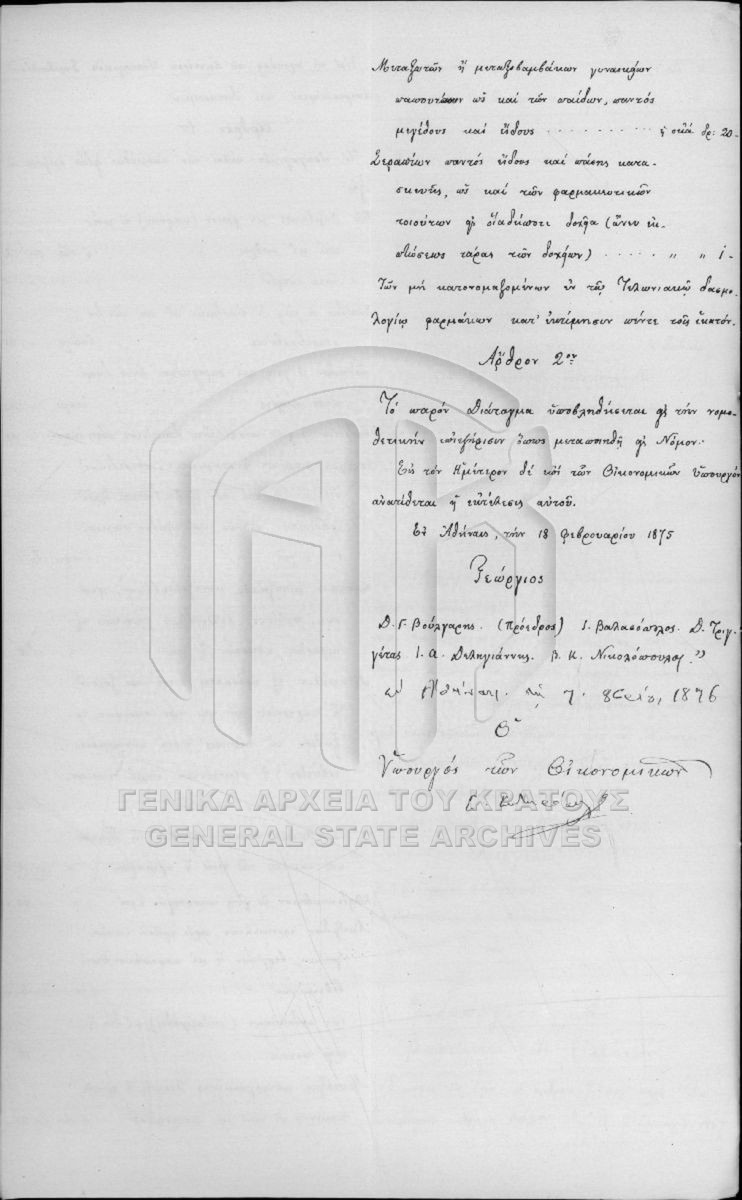 Μεταξωτῶν ἢ μεταξοβαμβάκων γυναικείων
ὡς καὶ τῶν παίδων, παντὸς
μεγέθους καὶ εἴδους . . . . . . . . . ἡ ὀκᾶ δρ: 20-
Σιροπίων παντὸς εἴδους καὶ πάσης κατα-
σκευῆς, ὡς καὶ τῶν φαρμακευτικῶν
τοιούτων εἰς δοχεῖα (ἄνευ ἐκ-
πτώσεως τάρας τῶν δοχείων) . . . . . „ „ 1-
Τῶν μὴ κατονομαζομένων ἐν τῷ Τελωνιακῷ δασμο-
λογίῳ φαρμάκων κατ' ἐκτίμησιν πέντε τοῖς ἑκατόν.
Ἄρθρον 2ον
Τὸ παρὸν Διάταγμα ὑποβληθήσεται εἰς τὴν νομο-
θετικὴν ἐπιψήφισιν ὅπως μεταποιηθῇ εἰς Νόμον.
Εἰς τὸν Ἡμέτερον δὲ ἐπὶ τῶν Οἰκονομικῶν Ὑπουργὸν
ἀνατίθεται ἡ ἐκτέλεσις αὐτοῦ.
Ἐν Ἀθήναις, τὴν 18 Φεβρουαρίου 1875
Γεώργιος
Δ. Γ. Βούλγαρης. (Πρόεδρος) Ι. Βαλασόπουλος. Δ. Τριγ-
γέτας Ι. Α. Δεληγιάννης. Β. Κ. Νικολόπουλος."
ἐν Ἀθήναις τῇ 7. 1876
Ὁ
Ὑπουργὸς τῶν Οἰκονομικῶν
ΓΕΝΙΚΑ ΑΡΧΕΙΑ ΤΟΥ ΚΡΑΤΟΥΣ
GENERAL STATE ARCHIVES